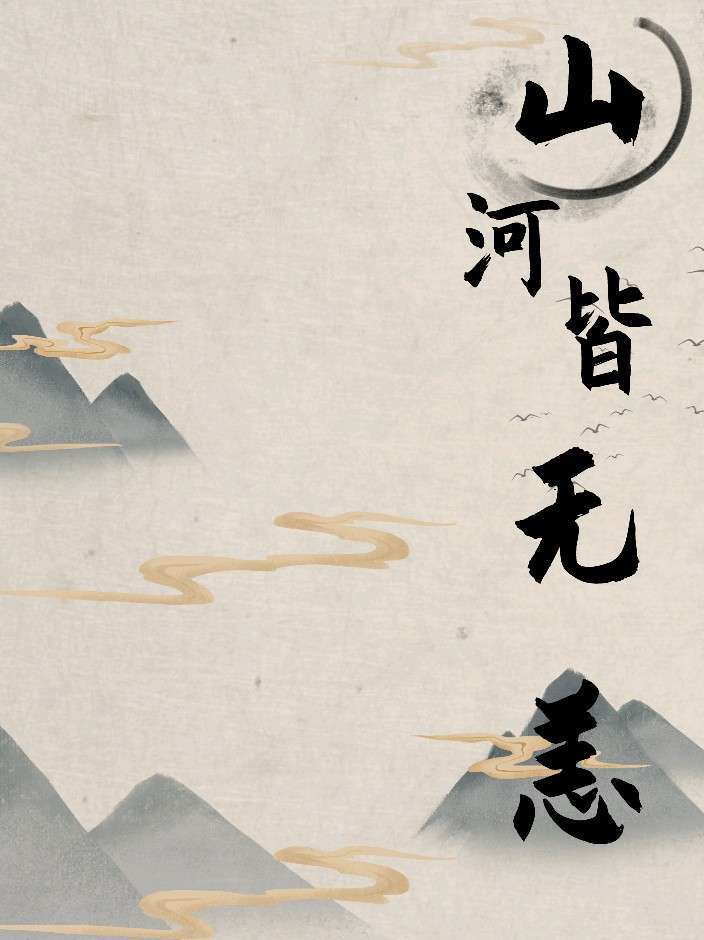 山河皆无恙